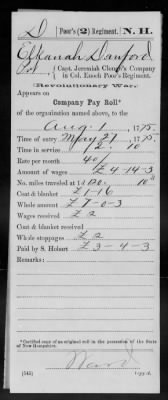 D | Poor's (2) Regiment. | N. H.
Elkanah Danford
Pvt., Capt. Jeremiah Clough's Company
in Col. Enoch Poor's Regiment.
(Revolutionary War.)
Appears on
Company Pay Roll*
of the organization named above, to the
Aug. 1, 1775.
Time of entry May 27, 1775.
Time in service 2. 10
Rate per month 40/
Amount of wages £4-14-3
No. miles traveled at 1d
Coat & blanket £1-16
Whole amount £7-0-3
Wages received £2
Coat & blanket received
Whole stoppages £2
Paid by S. Hobart £3-4-3
Remarks:
*Certified copy of an original roll in the possession of the State of New Hampshire.
Ward
(545) Copyist.